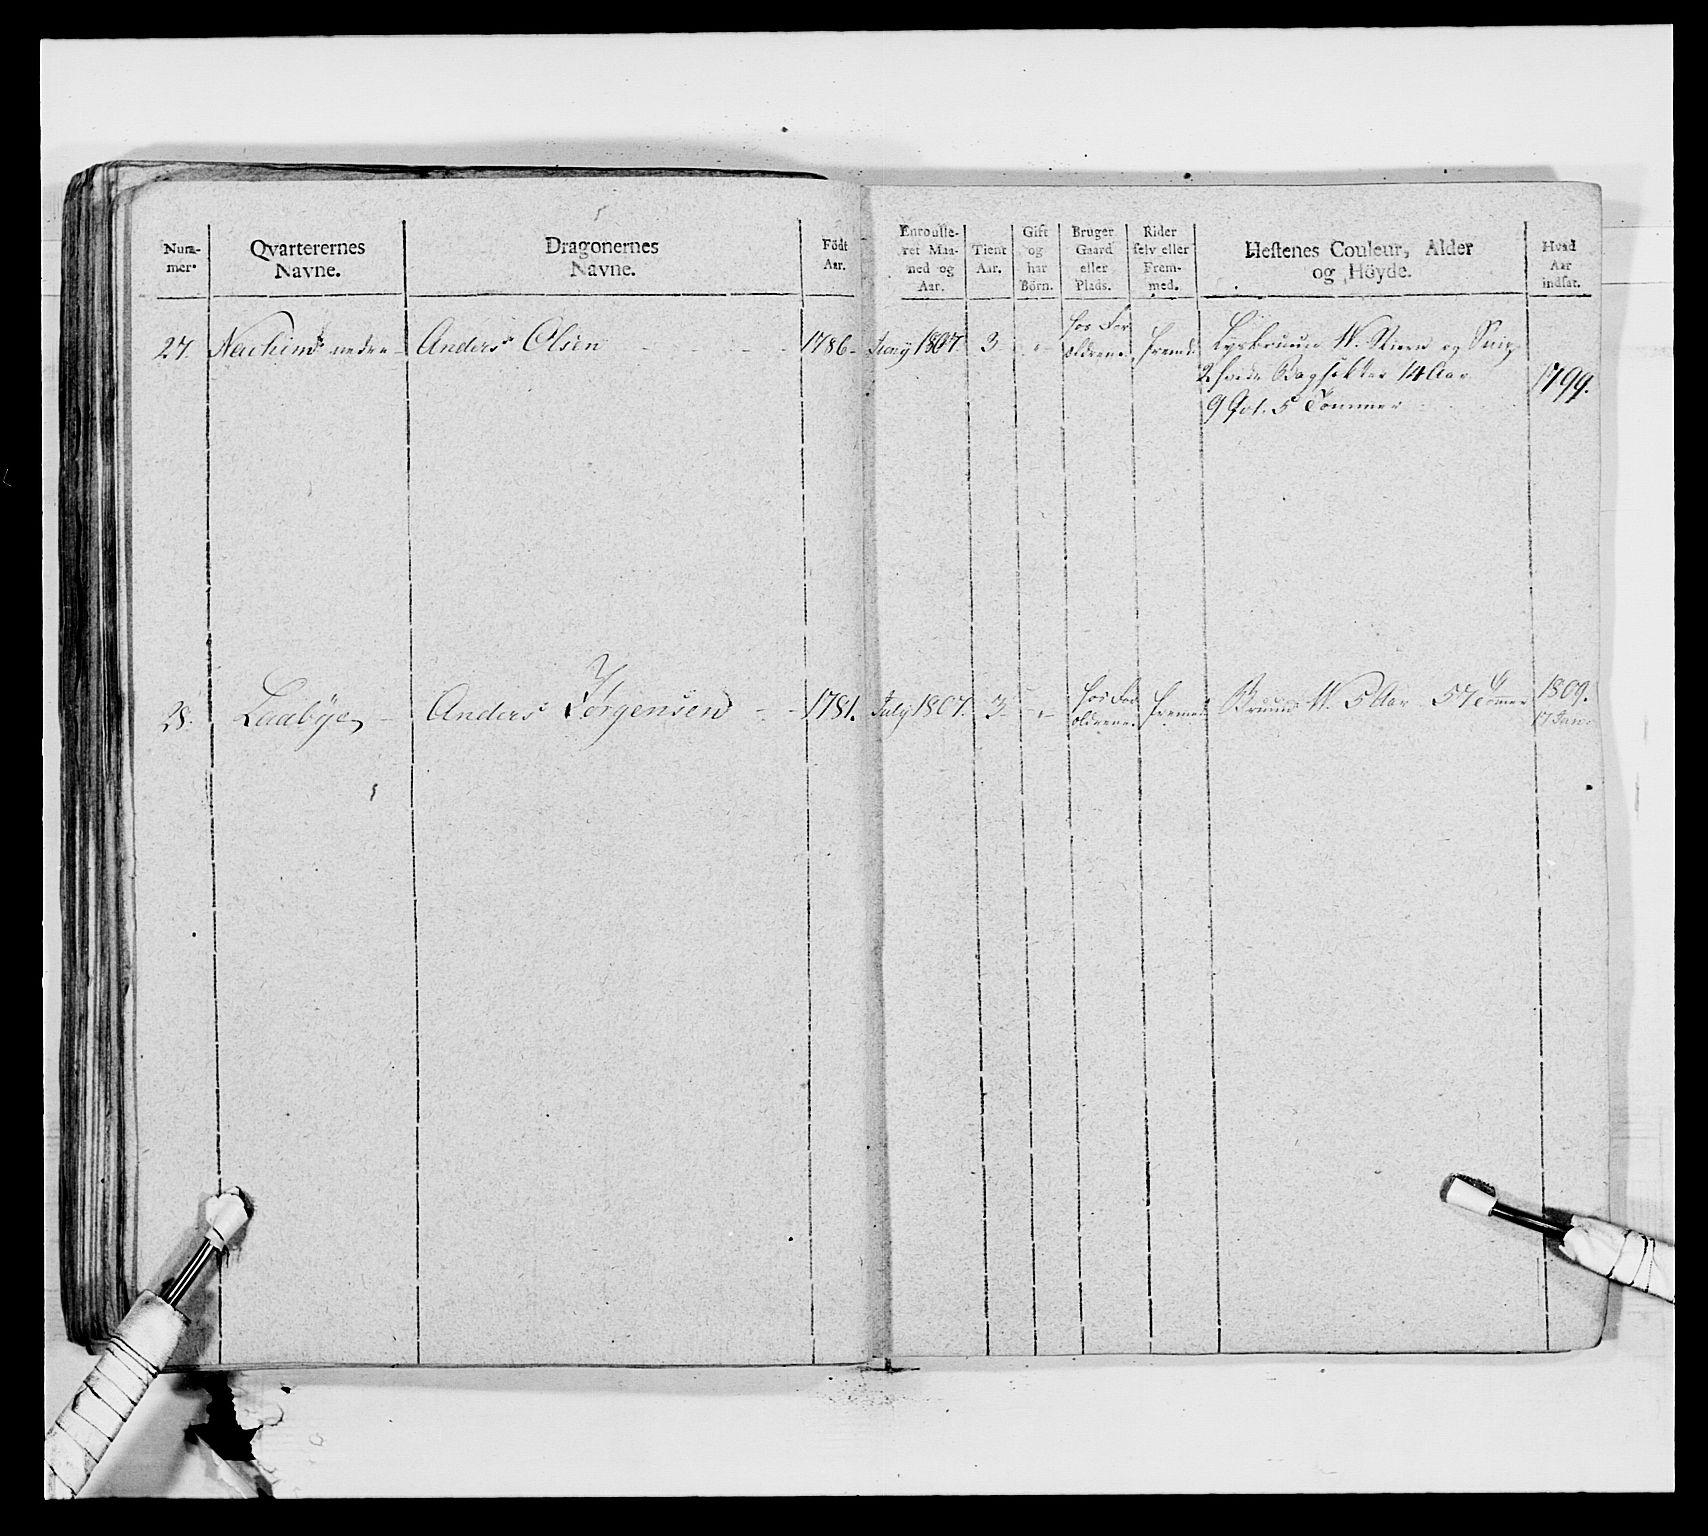 Num-
mer.
Qvarterernes
Navne.
Dragonernes
Navne.
Födt
Aar.
Enroulle-
ret Maa-
ned og
Aar.
Tient
Aar.
Gift
og
har
Börn.
Bruger
Gaard
eller
Plads.
Rider
selv eller
Frem-
med.
Hestenes Couleur, Alder
og Höyde.
Hvad
Aar
indsat.
27. nedre Anders Olsen 1786 1807. 3 hos For
ældrene fremd. Lysbruun W. Stiern og Snip
2 hvide Bagfötter 14 Aar
9 Qvt. 5 Tommer 1799.
28. Laabye Anders Jörgensen 1781. July 1807. 3 hos For
ældrene fremd. Bruun W. 5 Aar 57 Tommer 1809.
17 Jan.